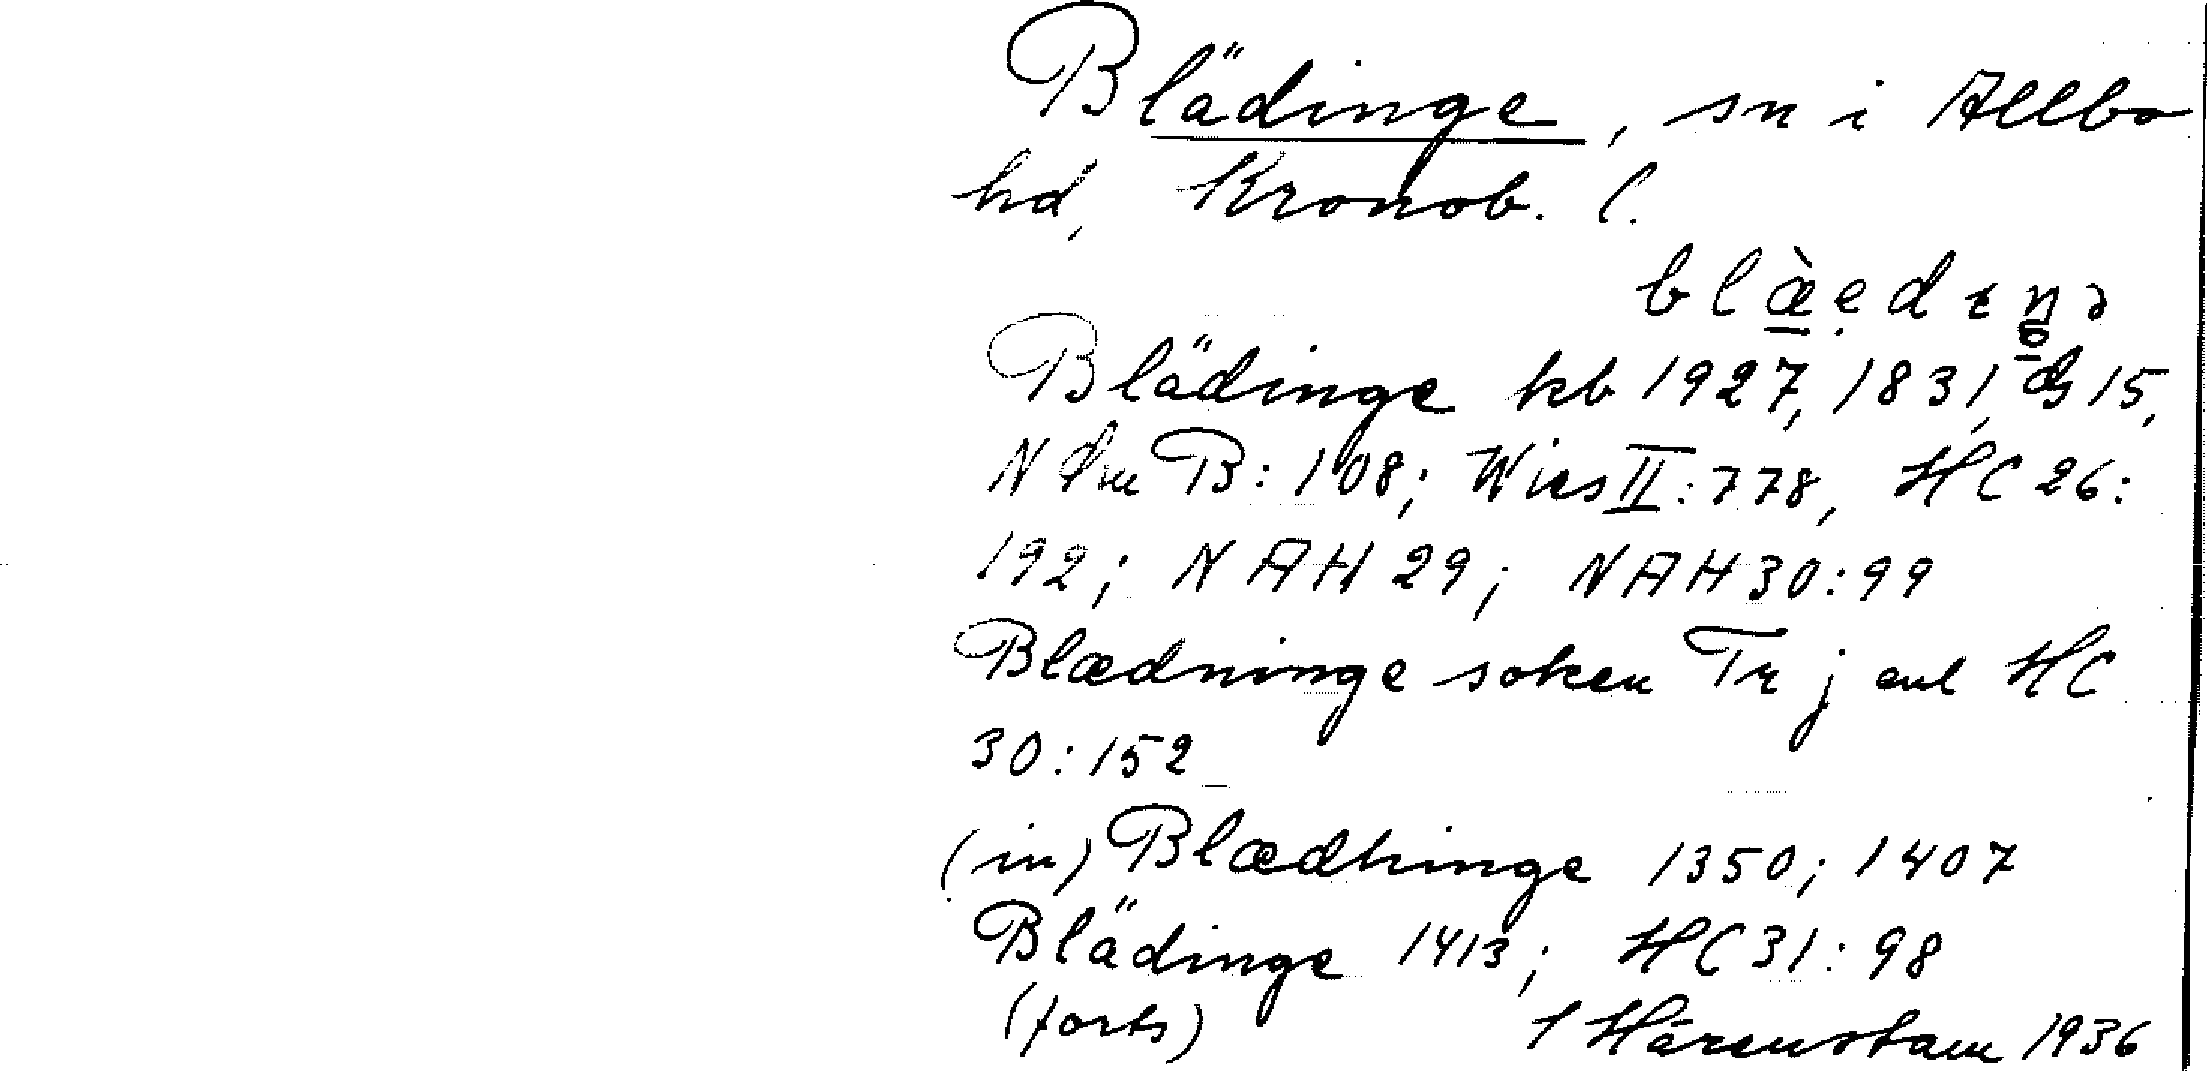 Blädinge, sn i Allbo
hd, Kronob. l.
Blädinge kb 1927, 1831, 15,
N B: 108; Wies II: 778, HC 26:
192; NAH 29; NAH 30:99
Blædninge soken Tr j enl HC
30:152
(in) Blædhinge 1350; 1407
Blädinge 1413; HC 31:98
(forts) Härenstam 1936